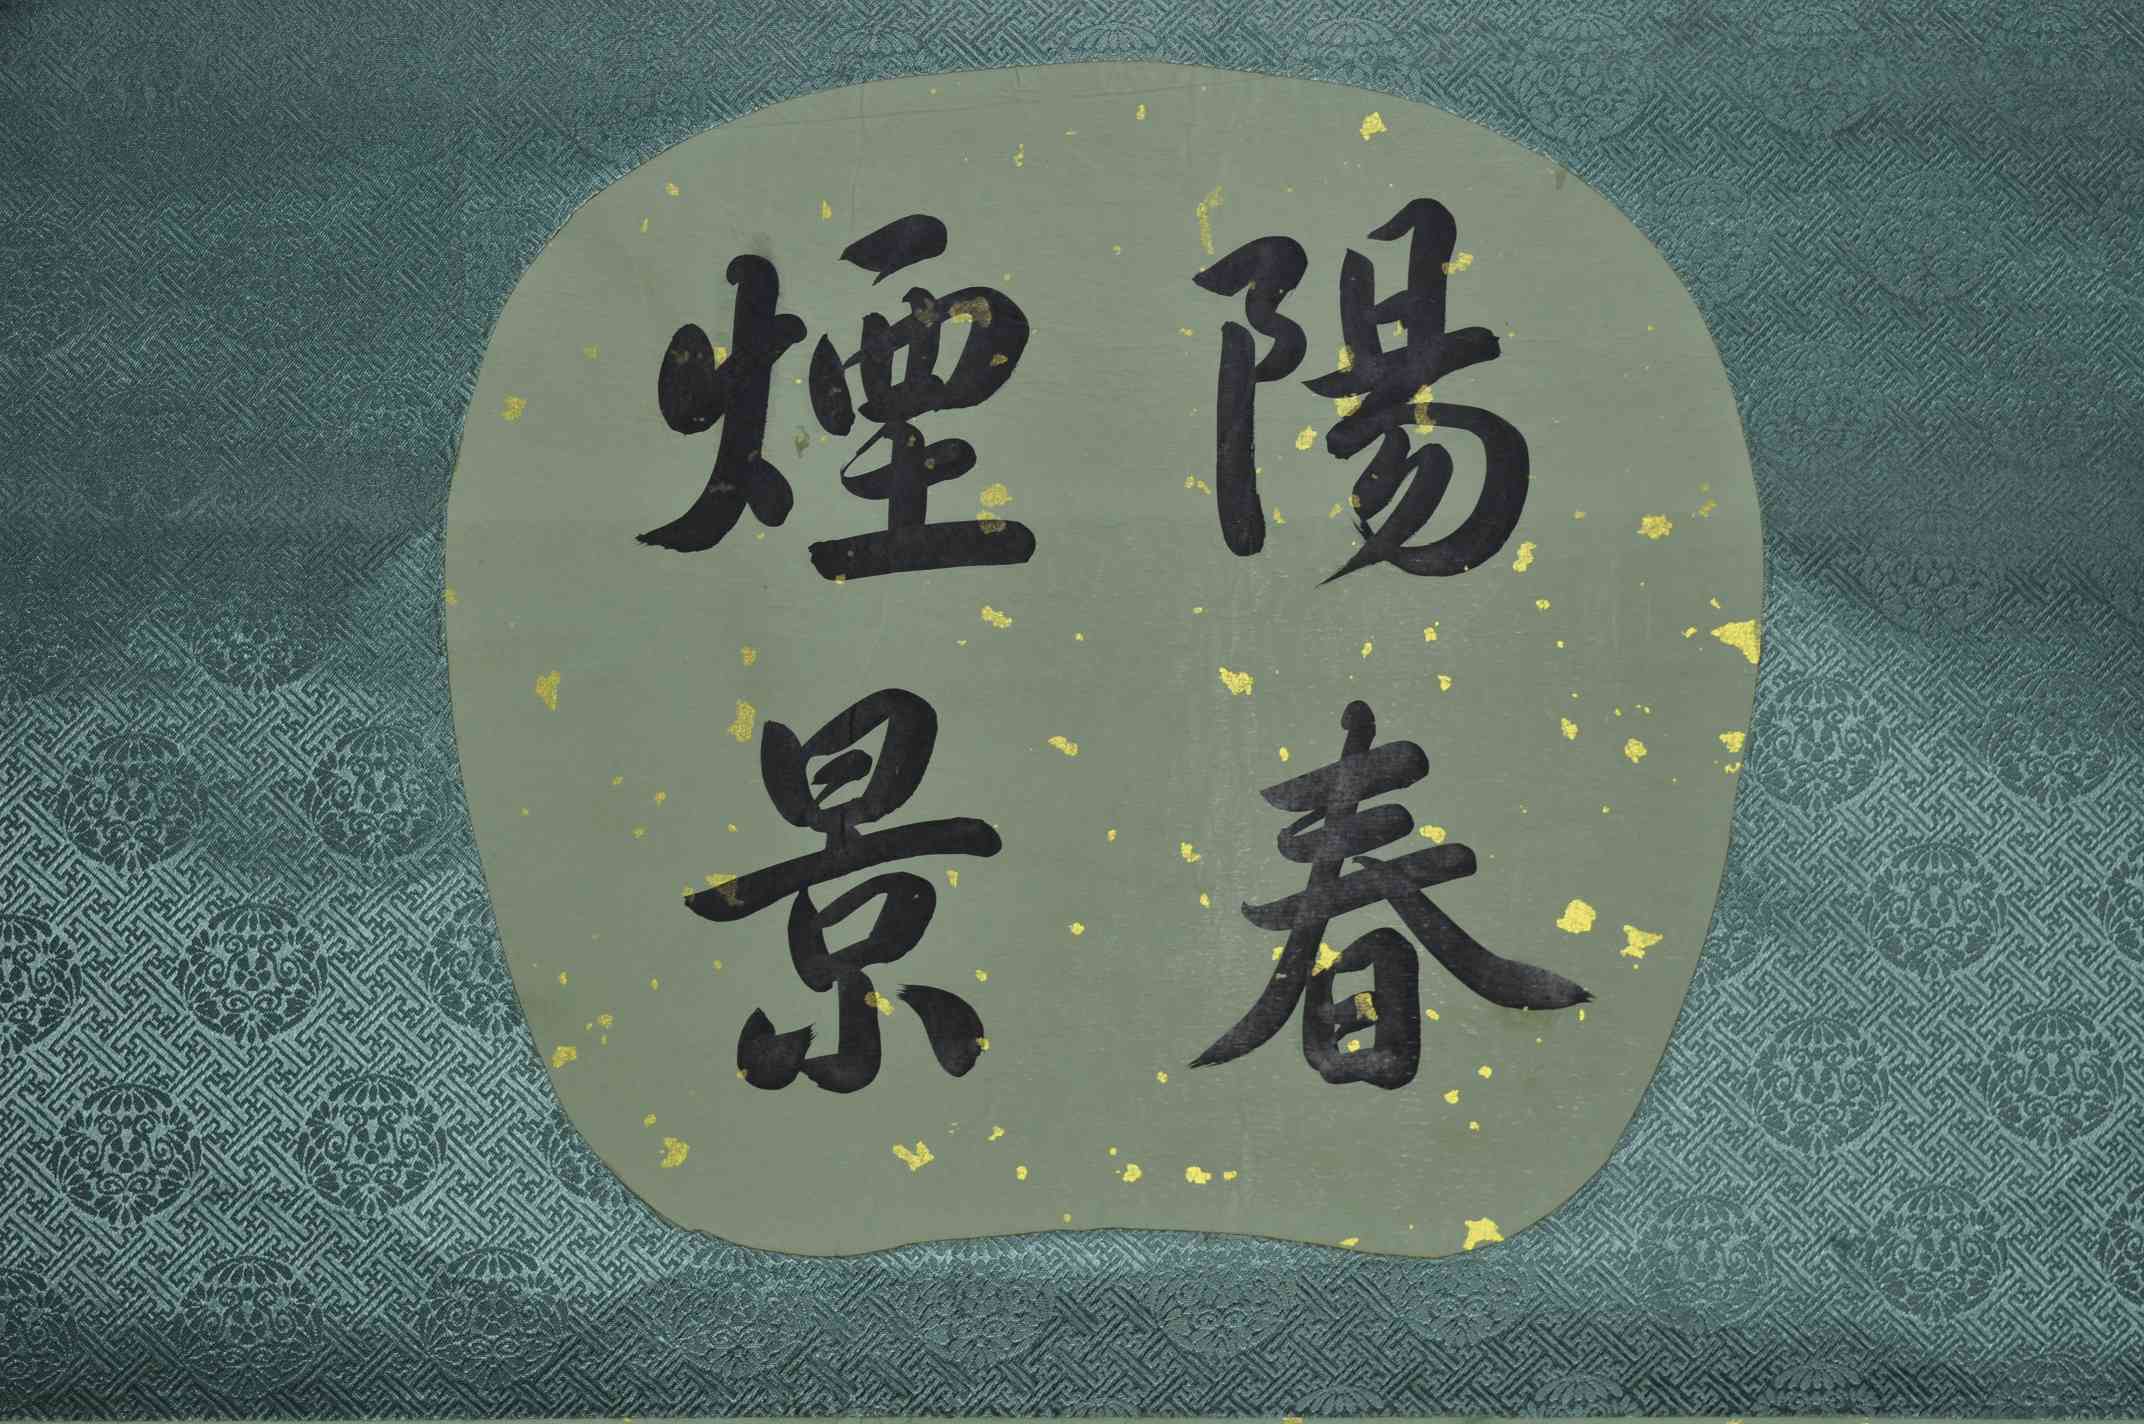 陽春
煙景